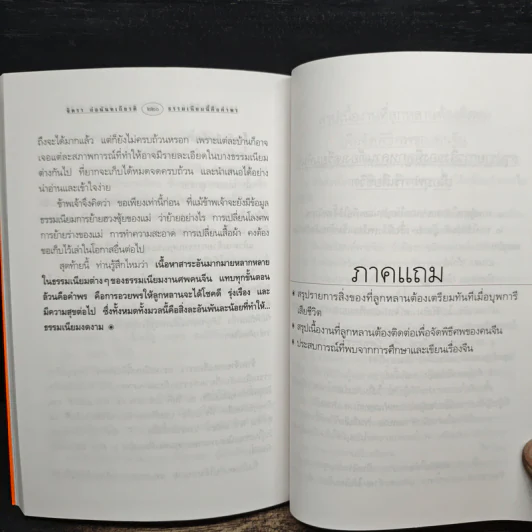 จิตรา ก่อนันทเกียรติ ธรรมเนียมนี้คือคำพร
ถึงจะได้มากแล้ว แต่ก็ยังไม่ครบถ้วนหรอก เพราะแต่ละบ้านก็อาจ
เจอแต่ละสภาพการณ์ที่ทำให้อาจมีรายละเอียดในบางธรรมเนียม
ต่างกันไป ที่ยากจะเก็บได้หมดจดครบถ้วน และนำเสนอได้อย่าง
น่าอ่านและเข้าใจง่าย
ข้าพเจ้าจึงคิดว่า ขอเพียงเท่านี้ก่อน ที่แม้ข้าพเจ้าจะยังมีข้อมูล
ธรรมเนียมการย้ายฮวงซุ้ยของแม่ ว่าย้ายอย่างไร การเปลี่ยนโลงศพ
การย้ายร่างของแม่ การทำความสะอาด การเปลี่ยนเสื้อผ้า คงต้อง
ขอเก็บไว้เล่าในโอกาสอื่นต่อไป
สุดท้ายนี้ ท่านรู้สึกไหมว่า เนื้อหาสาระอันมากมายหลากหลาย
ในธรรมเนียมต่างๆ ของธรรมเนียมงานศพคนจีน แทบทุกขั้นตอน
ล้วนคือคำพร คือการอวยพรให้ลูกหลานจะได้โชคดี รุ่งเรือง และ
มีความสุขต่อไป ซึ่งทั้งหมดทั้งมวลนี้คือสิ่งละอันพันละน้อยที่ทำให้...
ธรรมเนียมงดงาม
ภาคแถม
• สรุปรายการสิ่งของที่ลูกหลานต้องเตรียมทันทีเมื่อบุพการี
เสียชีวิต
• สรุปเนื้องานที่ลูกหลานต้องติดต่อเพื่อจัดพิธีศพของคนจีน
• ประสบการณ์ที่พบจากการศึกษาและเขียนเรื่องจีน